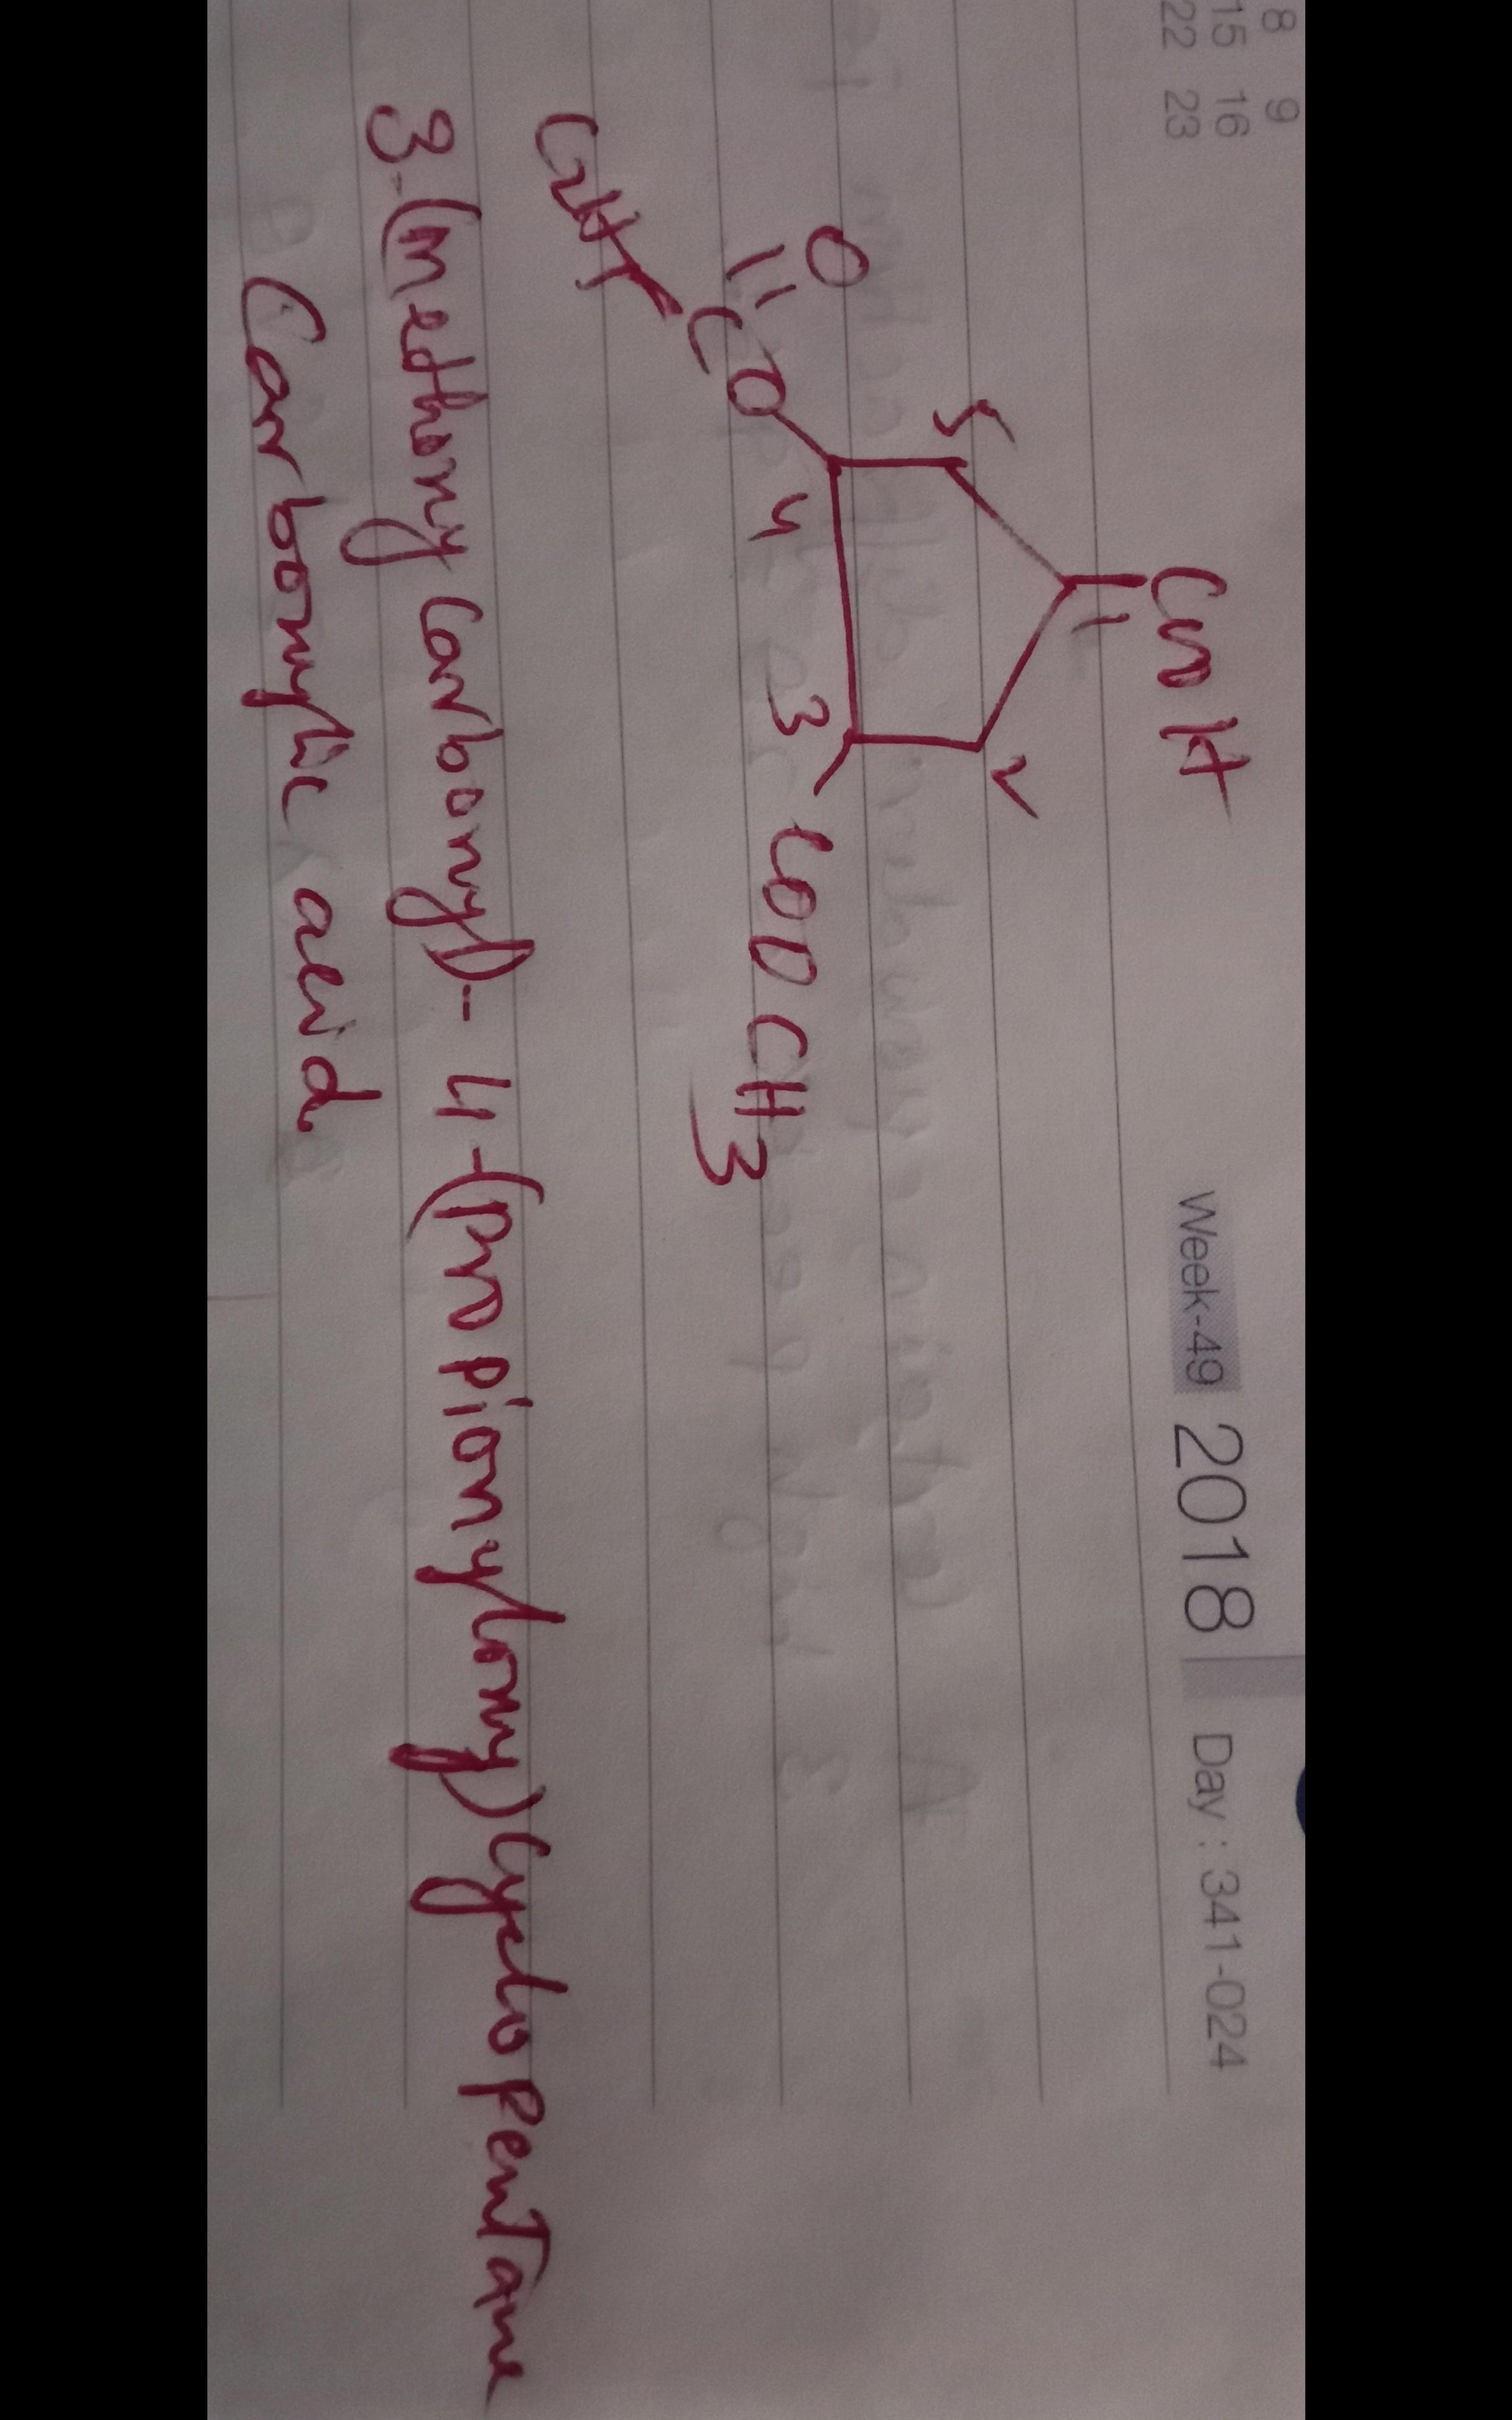 8 9
15 16
22 23
Week-49 2018 Day : 341-024
COOH
1
5
2
O
4
3
COOCH3
C2H5
CO
3-(methoxy carbonyl)-4-(propionyloxy)cyclopentane
Carboxylic acid